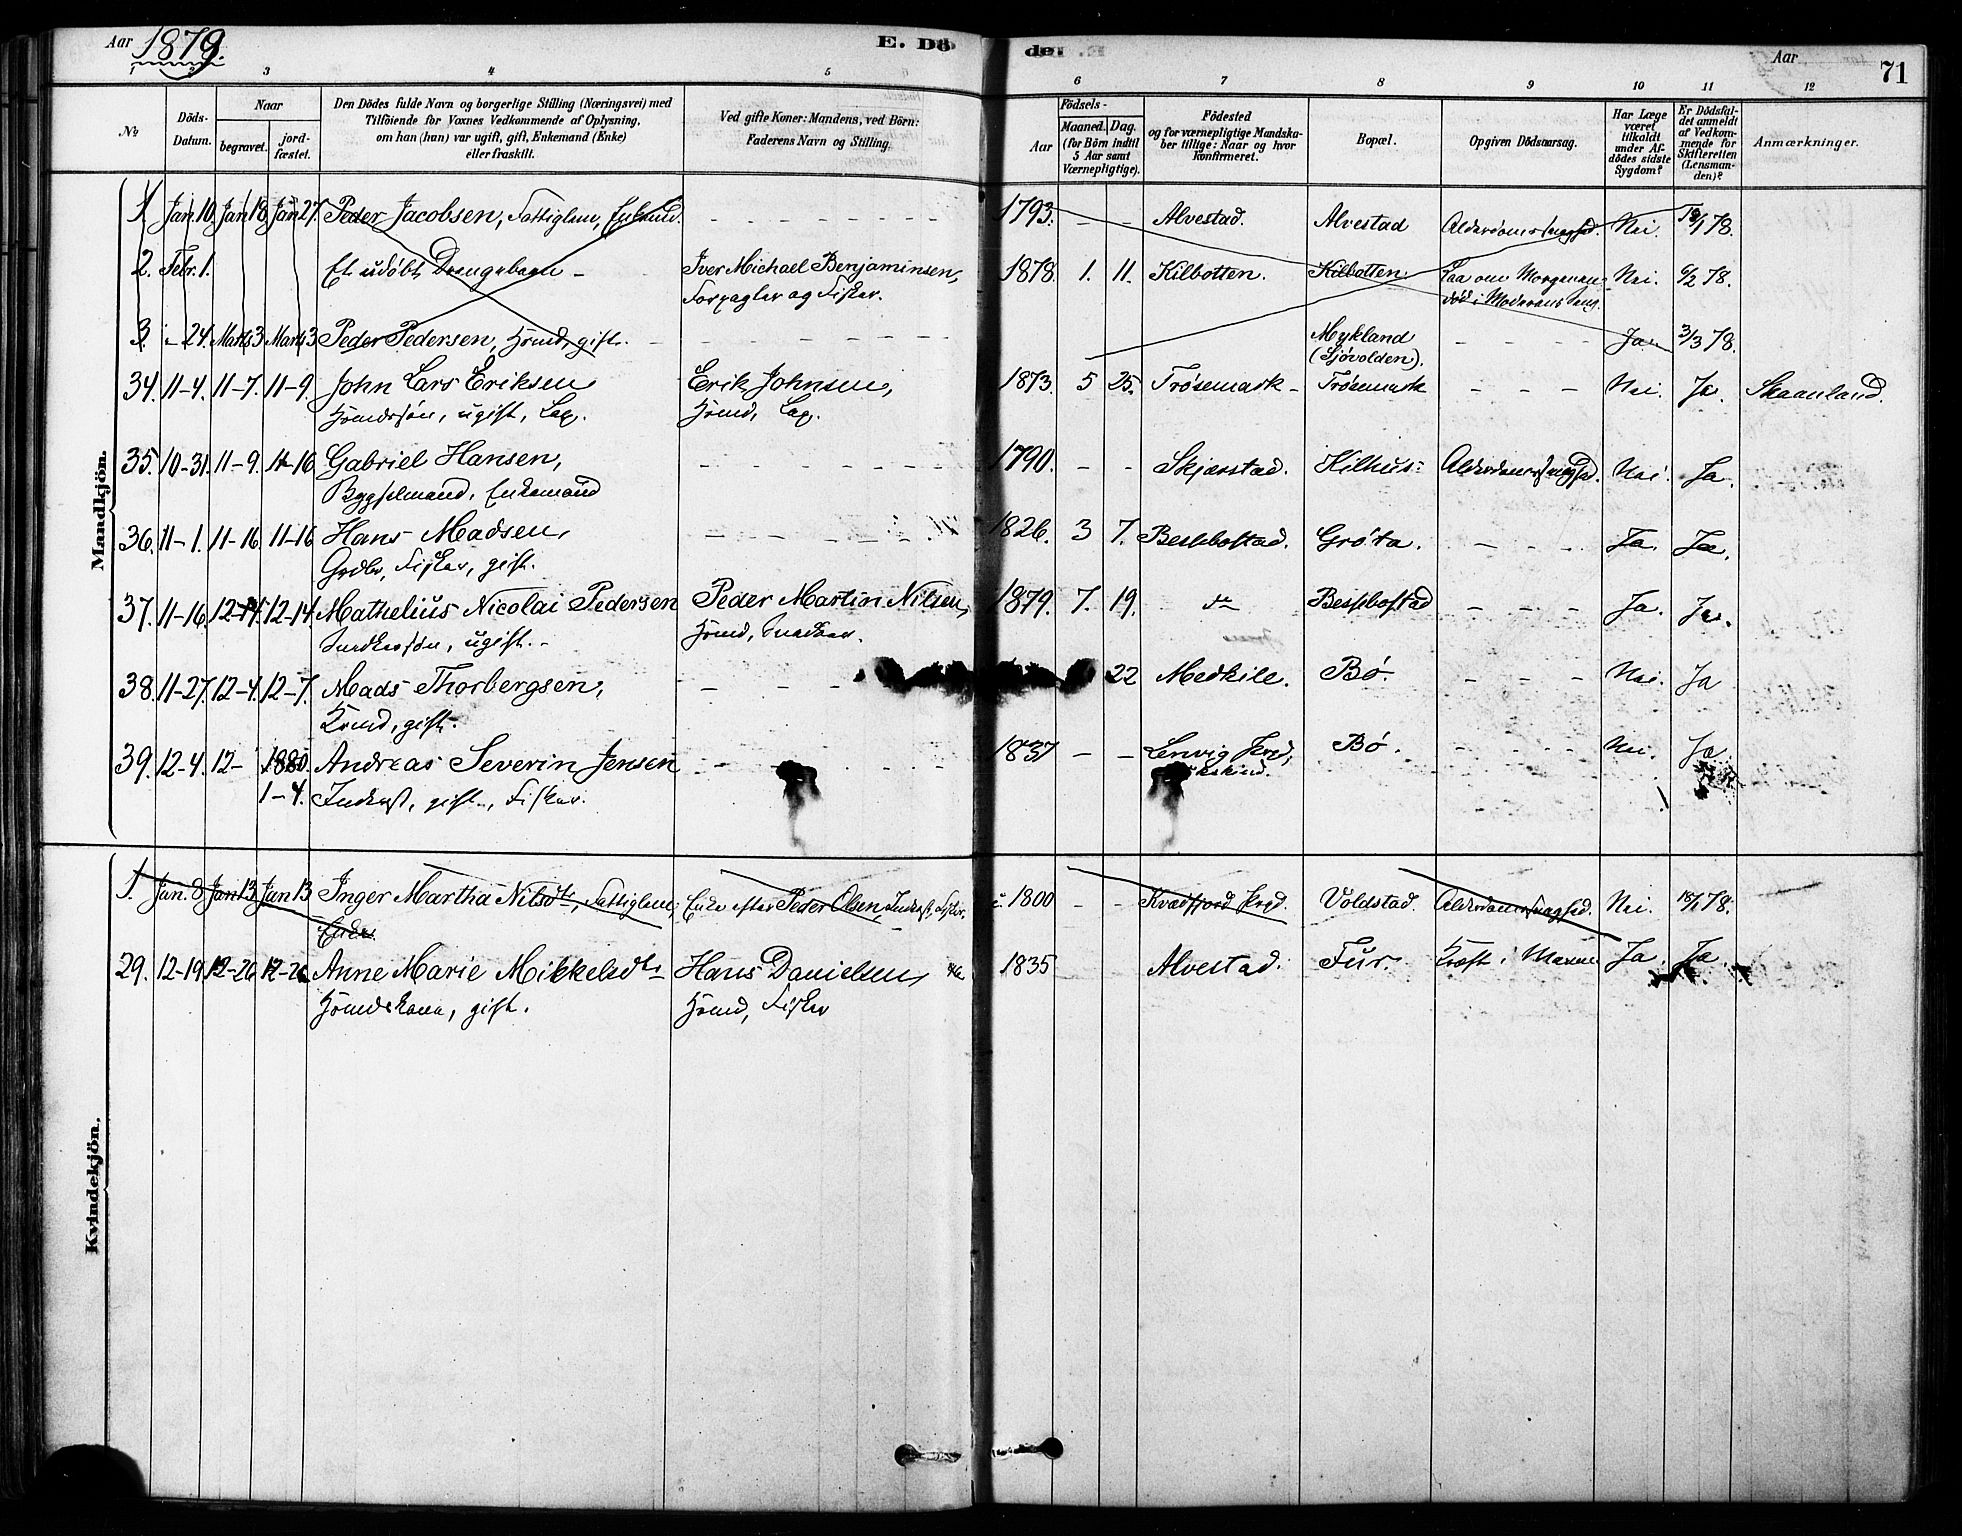 Aar 1879.
E. Dö
Aar
71
1 2 3 4 5 6 7 8 9 10 11 12
No
Döds-
Datum.
Naar
begravet.
jord-
fæstet.
Den Dödes fulde Navn og borgerlige Stilling (Næringsvei) med
Tilföiende for Voxnes Vedkommende af Oplysning,
om han (hun) var ugift, gift, Enkemand (Enke)
eller fraskilt.
Ved gifte Koner: Mandens, ved Börn:
Faderens Navn og Stilling.
Födsels-
Aar
Maaned.
Dag.
(for Börn indtil
5 Aar samt
Værnepligtige).
Födested
og for værnepligtige Mandska-
ber tillige: Naar og hvor
konfirmeret.
Bopæl.
Opgiven Dödsaarsag.
Har Læge
været
tilkaldt
under Af-
dödes sidste
Sygdom?
Er Dödsfal-
det anmeldt
af Vedkom-
mende for
Skifteretten
(Lensman-
den)?
Anmærkninger.
Mandkjön.
1. Jan. 10. Jan 18. Jan 27. Peder Jacobsen, Fattiglem, Enkmd. 1793. Alvestad. Alvestad Alderdomssvaghed. Nei. 18/1 78.
2. Febr. 1. Et udøbt Drengebarn Iver Michael Benjaminsen, 1878. 1. 11. Kilbotten. Kilbotten. Laa om Morgenen Nei. 6/2 78.
Forpagter og Fisker. død i Moderens Seng.
3. " 24. Marts 3 Marts 3 Peder Pedersen, Hmd, gift. Mykland Ja. 3/3 78.
(Sjøvolden).
34. 11-4. 11-7. 11-9. John Lars Eriksen Erik Johnsen, 1873. 5 25. Trøsemark Trøsemark Nei. Ja. Skaanland.
Hmdssøn, ugift, Lap. Hmd, Lap.
35. 10-31. 11-9. 11-16. Gabriel Hansen, 1790. Skjærstad. Kilhus: Alderdomssvaghed. Nei. Ja.
Bygselmand, Enkemand
36. 11-1. 11-16. 11-16 Hans Madsen, 1826. 3 7. Bessebostad. Grøta. Ja. Ja.
Grdbr, Fisker, gift.
37. 11-16. 12-14. 12-14. Mathelius Nicolai Pedersen Peder Martin Nilsen, 1879. 7. 19. do Bessebostad Ja. Ja.
ugift. Hmd,
38. 11-27. 12-4. 12-7. Mads Thorbergsen, 22 Medkile. Bø. Nei. Ja
gift.
39. 12-4. 12- 1880. Andreas Severin Jensen 1837 Lenvig Bø. Nei. Ja
1-4. Inderst, gift, Fisker.
Kvindekjön.
1. Jan. 8. Jan 13. Jan 13 Inger Martha Nilsdtr, Fattiglem, Enke efter Peder Olsen, Inderst, Fisker. 1800 Kvædfjord Voldstad. Alderdomssvaghed. Nei. 18/1 78.
Enke.
29. 12-19. 12-26. 12-26 Anne Marie Mikkelsdtr Hans Danielsen, 1835 Alvestad. Fur. Kræft i Maven Ja. Ja.
Hmdskone, gift. Hmd, Fisker